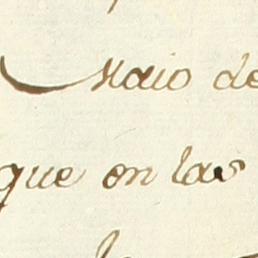 Maio de
que en las